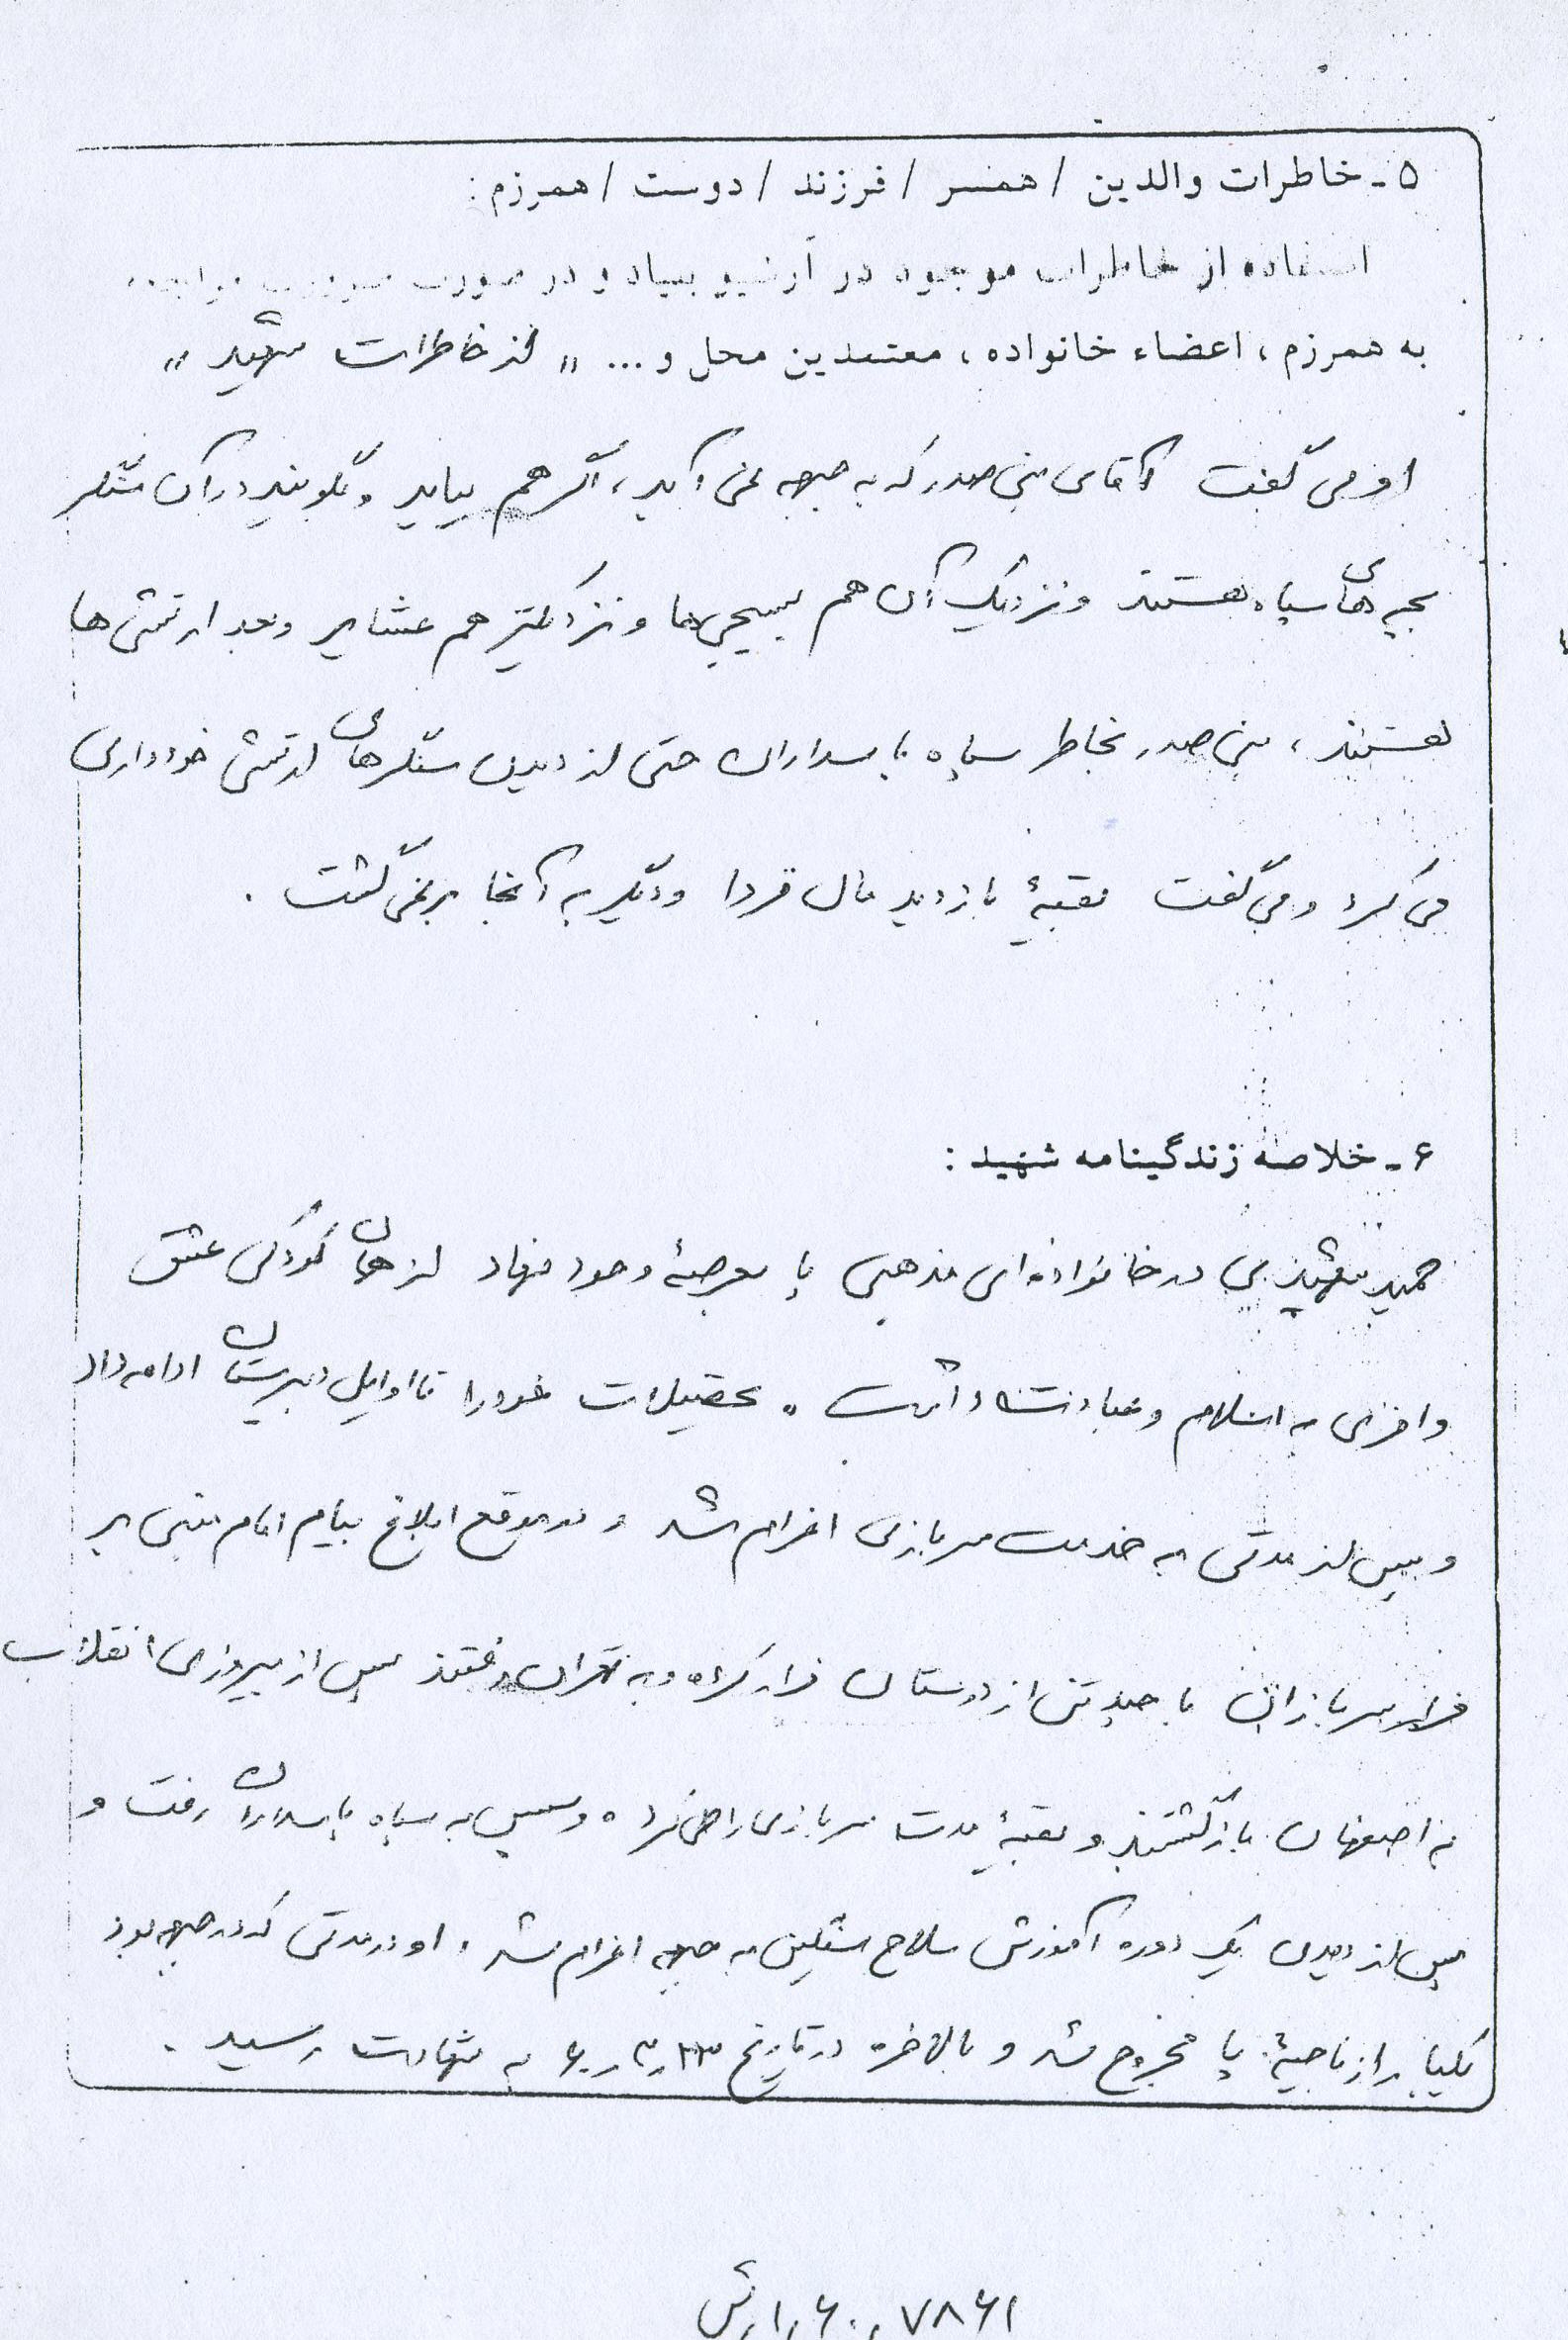 ۵ - خاطرات والدین / همسر / فرزند / دوست / همرزم :
استفاده از خاطرات موجود در آرشیو بنیاد و در صورت
به همرزم ، اعضاء خانواده ، معتمدین محل و ... " از خاطرات شهید "
او می گفت آقای بنی صدر که به جبهه نمی آید ، اگر هم بیاید و بگویند در آن سنگر
بچه های سپاه هستند و نزدیک آن هم بسیجی ها و نزدیکتر هم عشایر و بعد ارتشی ها
هستند ، بنی صدر بخاطر سپاه پاسداران حتی از دیدن سنگرهای ارتشی خودداری
می کرد و می گفت بقیهٔ بازدید مال فردا و دیگر به آنجا بر نمی گشت .
۶ - خلاصه زندگینامه شهید :
حمید در خانواده ای مذهبی پا بعرصهٔ وجود نهاد از همان کودکی عشق
وافری به اسلام و عبادت داشت . تحصیلات خود را تا اوایل دبیرستان ادامه داد
و پس از مدتی به خدمت سربازی اعزام شد و در موقع ابلاغ پیام امام مبنی بر
فرار سربازان با چند تن از دوستان فرار کرده و به تهران رفتند پس از پیروزی انقلاب
به اصفهان بازگشتند و بقیهٔ مدت سربازی را طی کرده و سپس به سپاه پاسداران رفت و
پس از دیدن یک دوره آموزش سلاح سنگین به جبهه اعزام شد ، او در مدتی که در جبهه بود
یکبار از ناحیهٔ پا مجروح شد و بالاخره در تاریخ ۲۳ ر ۳ ر ۶۰ به شهادت رسید .